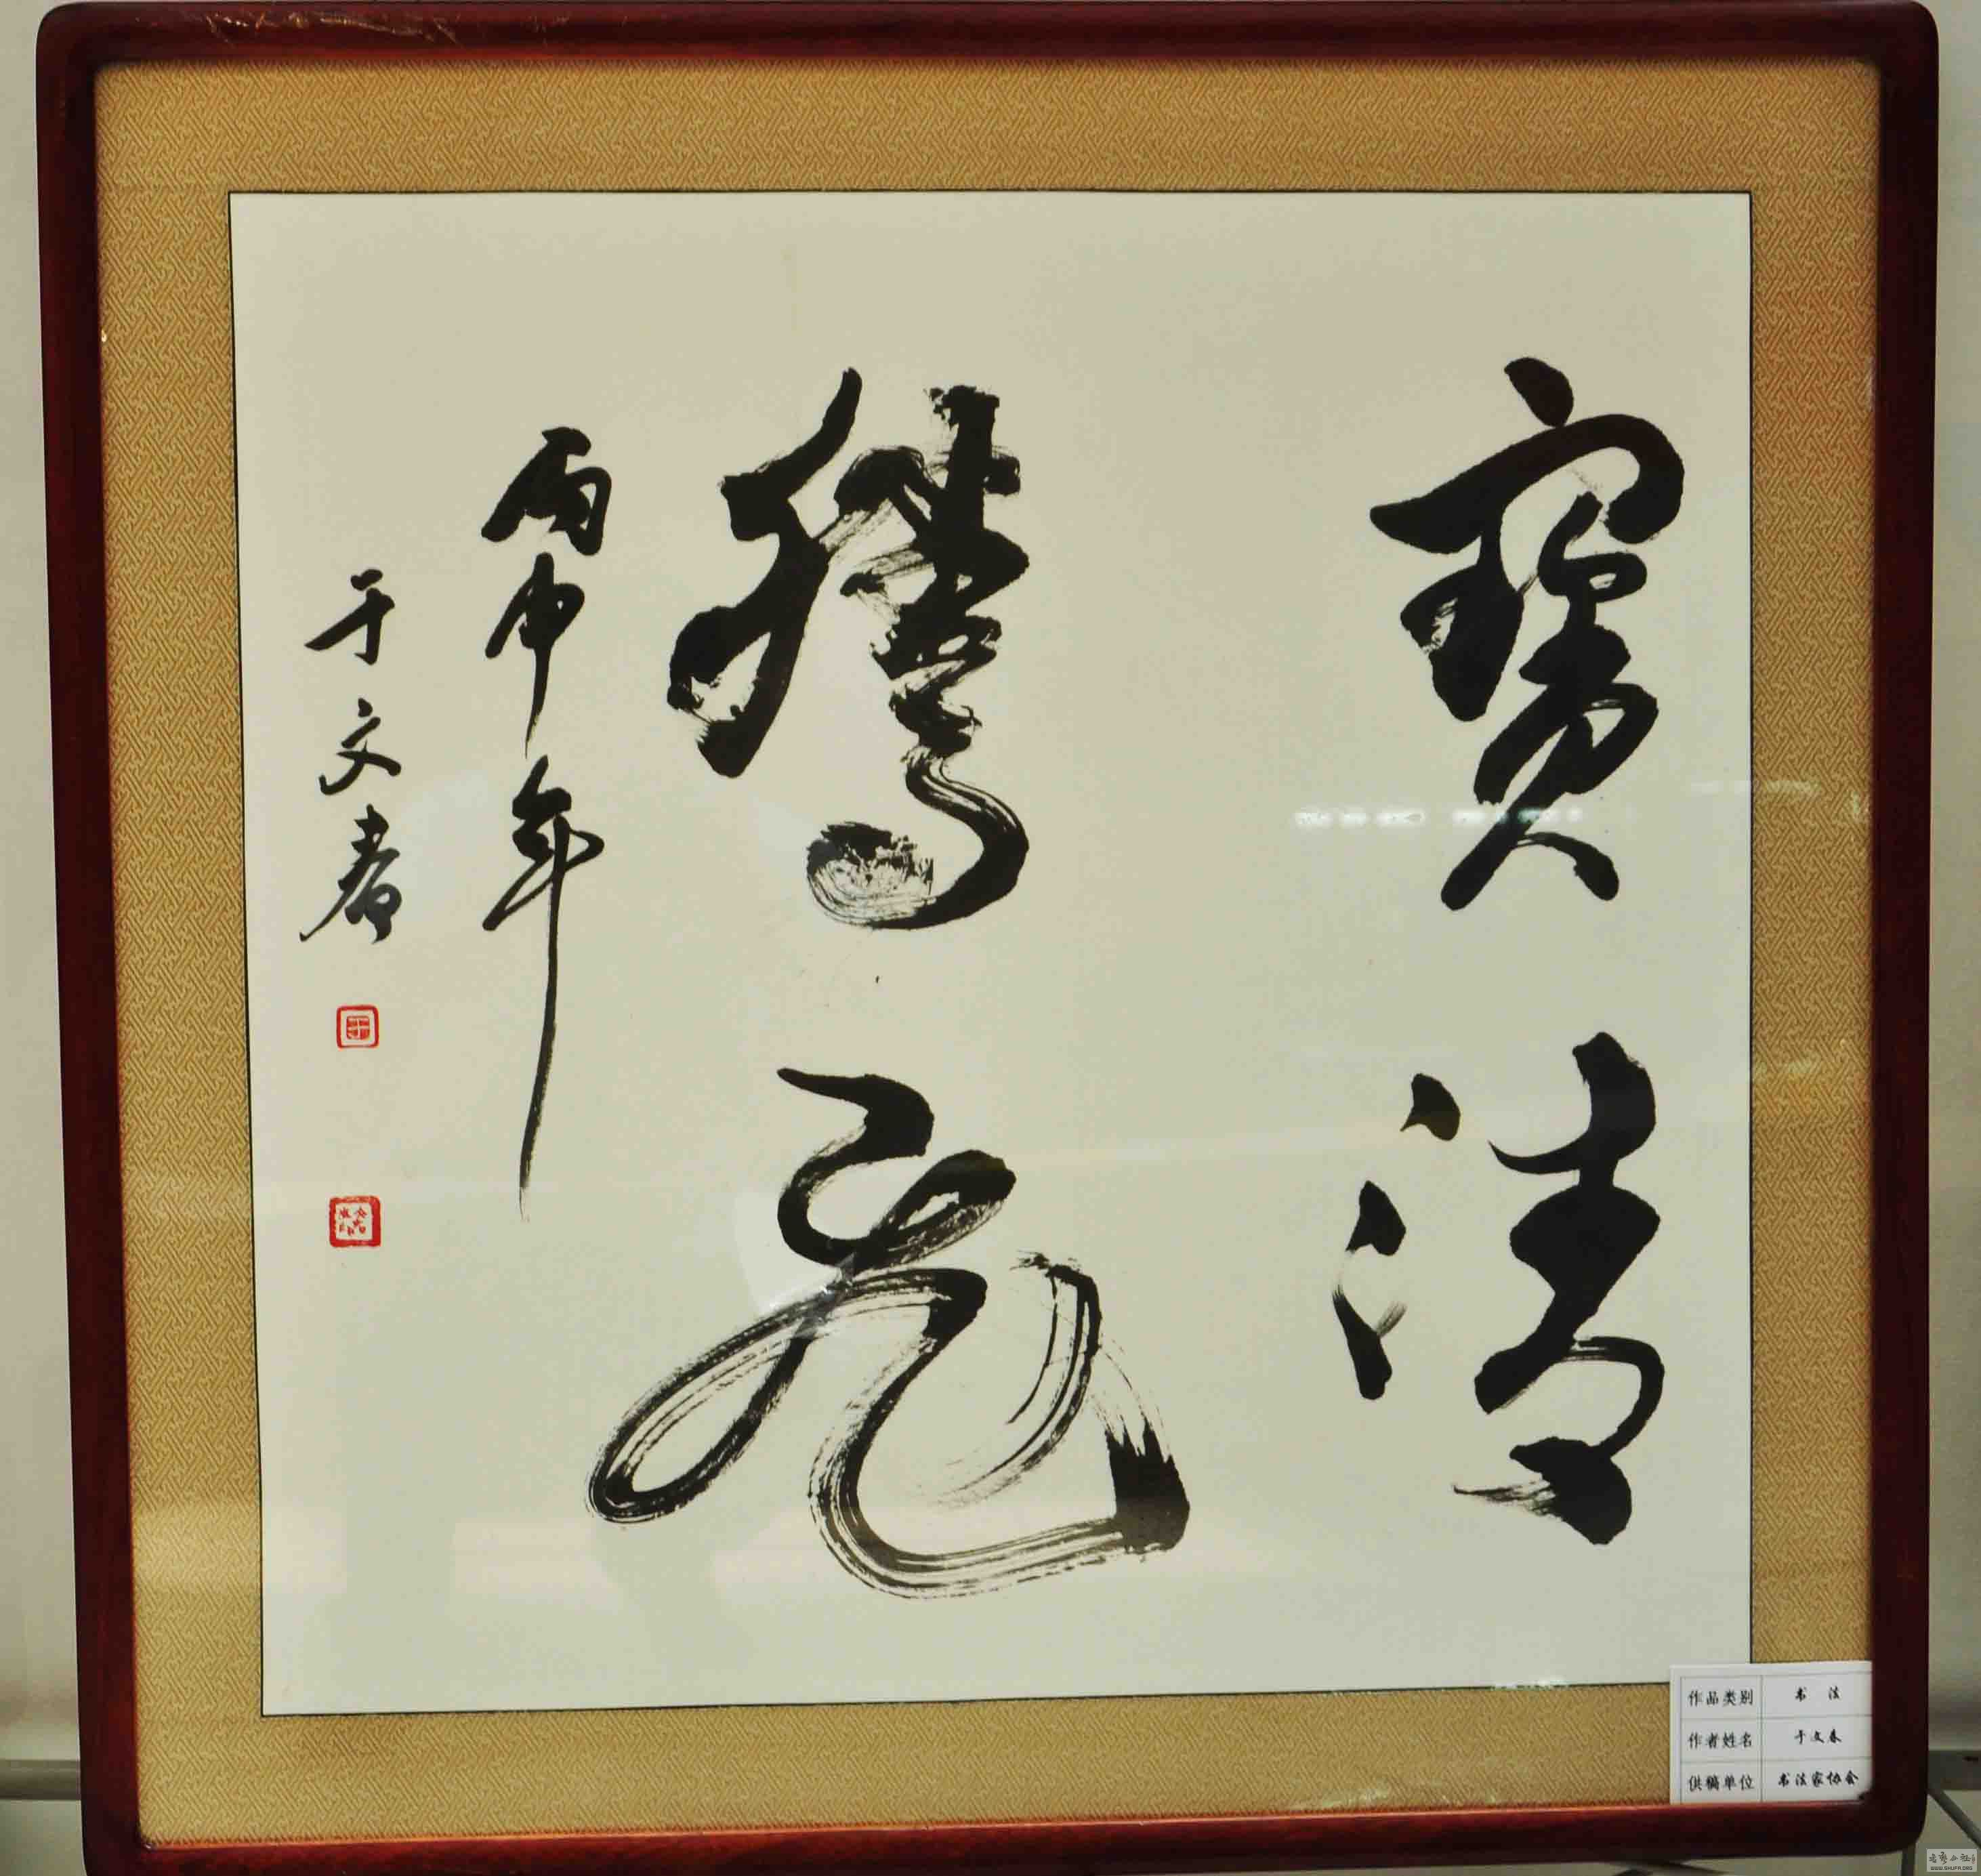 寶清
騰飛
丙申年
于文春
作品类别 书法
作者姓名 于文春
供稿单位 书法家协会
WWW.SHUFR.ORG